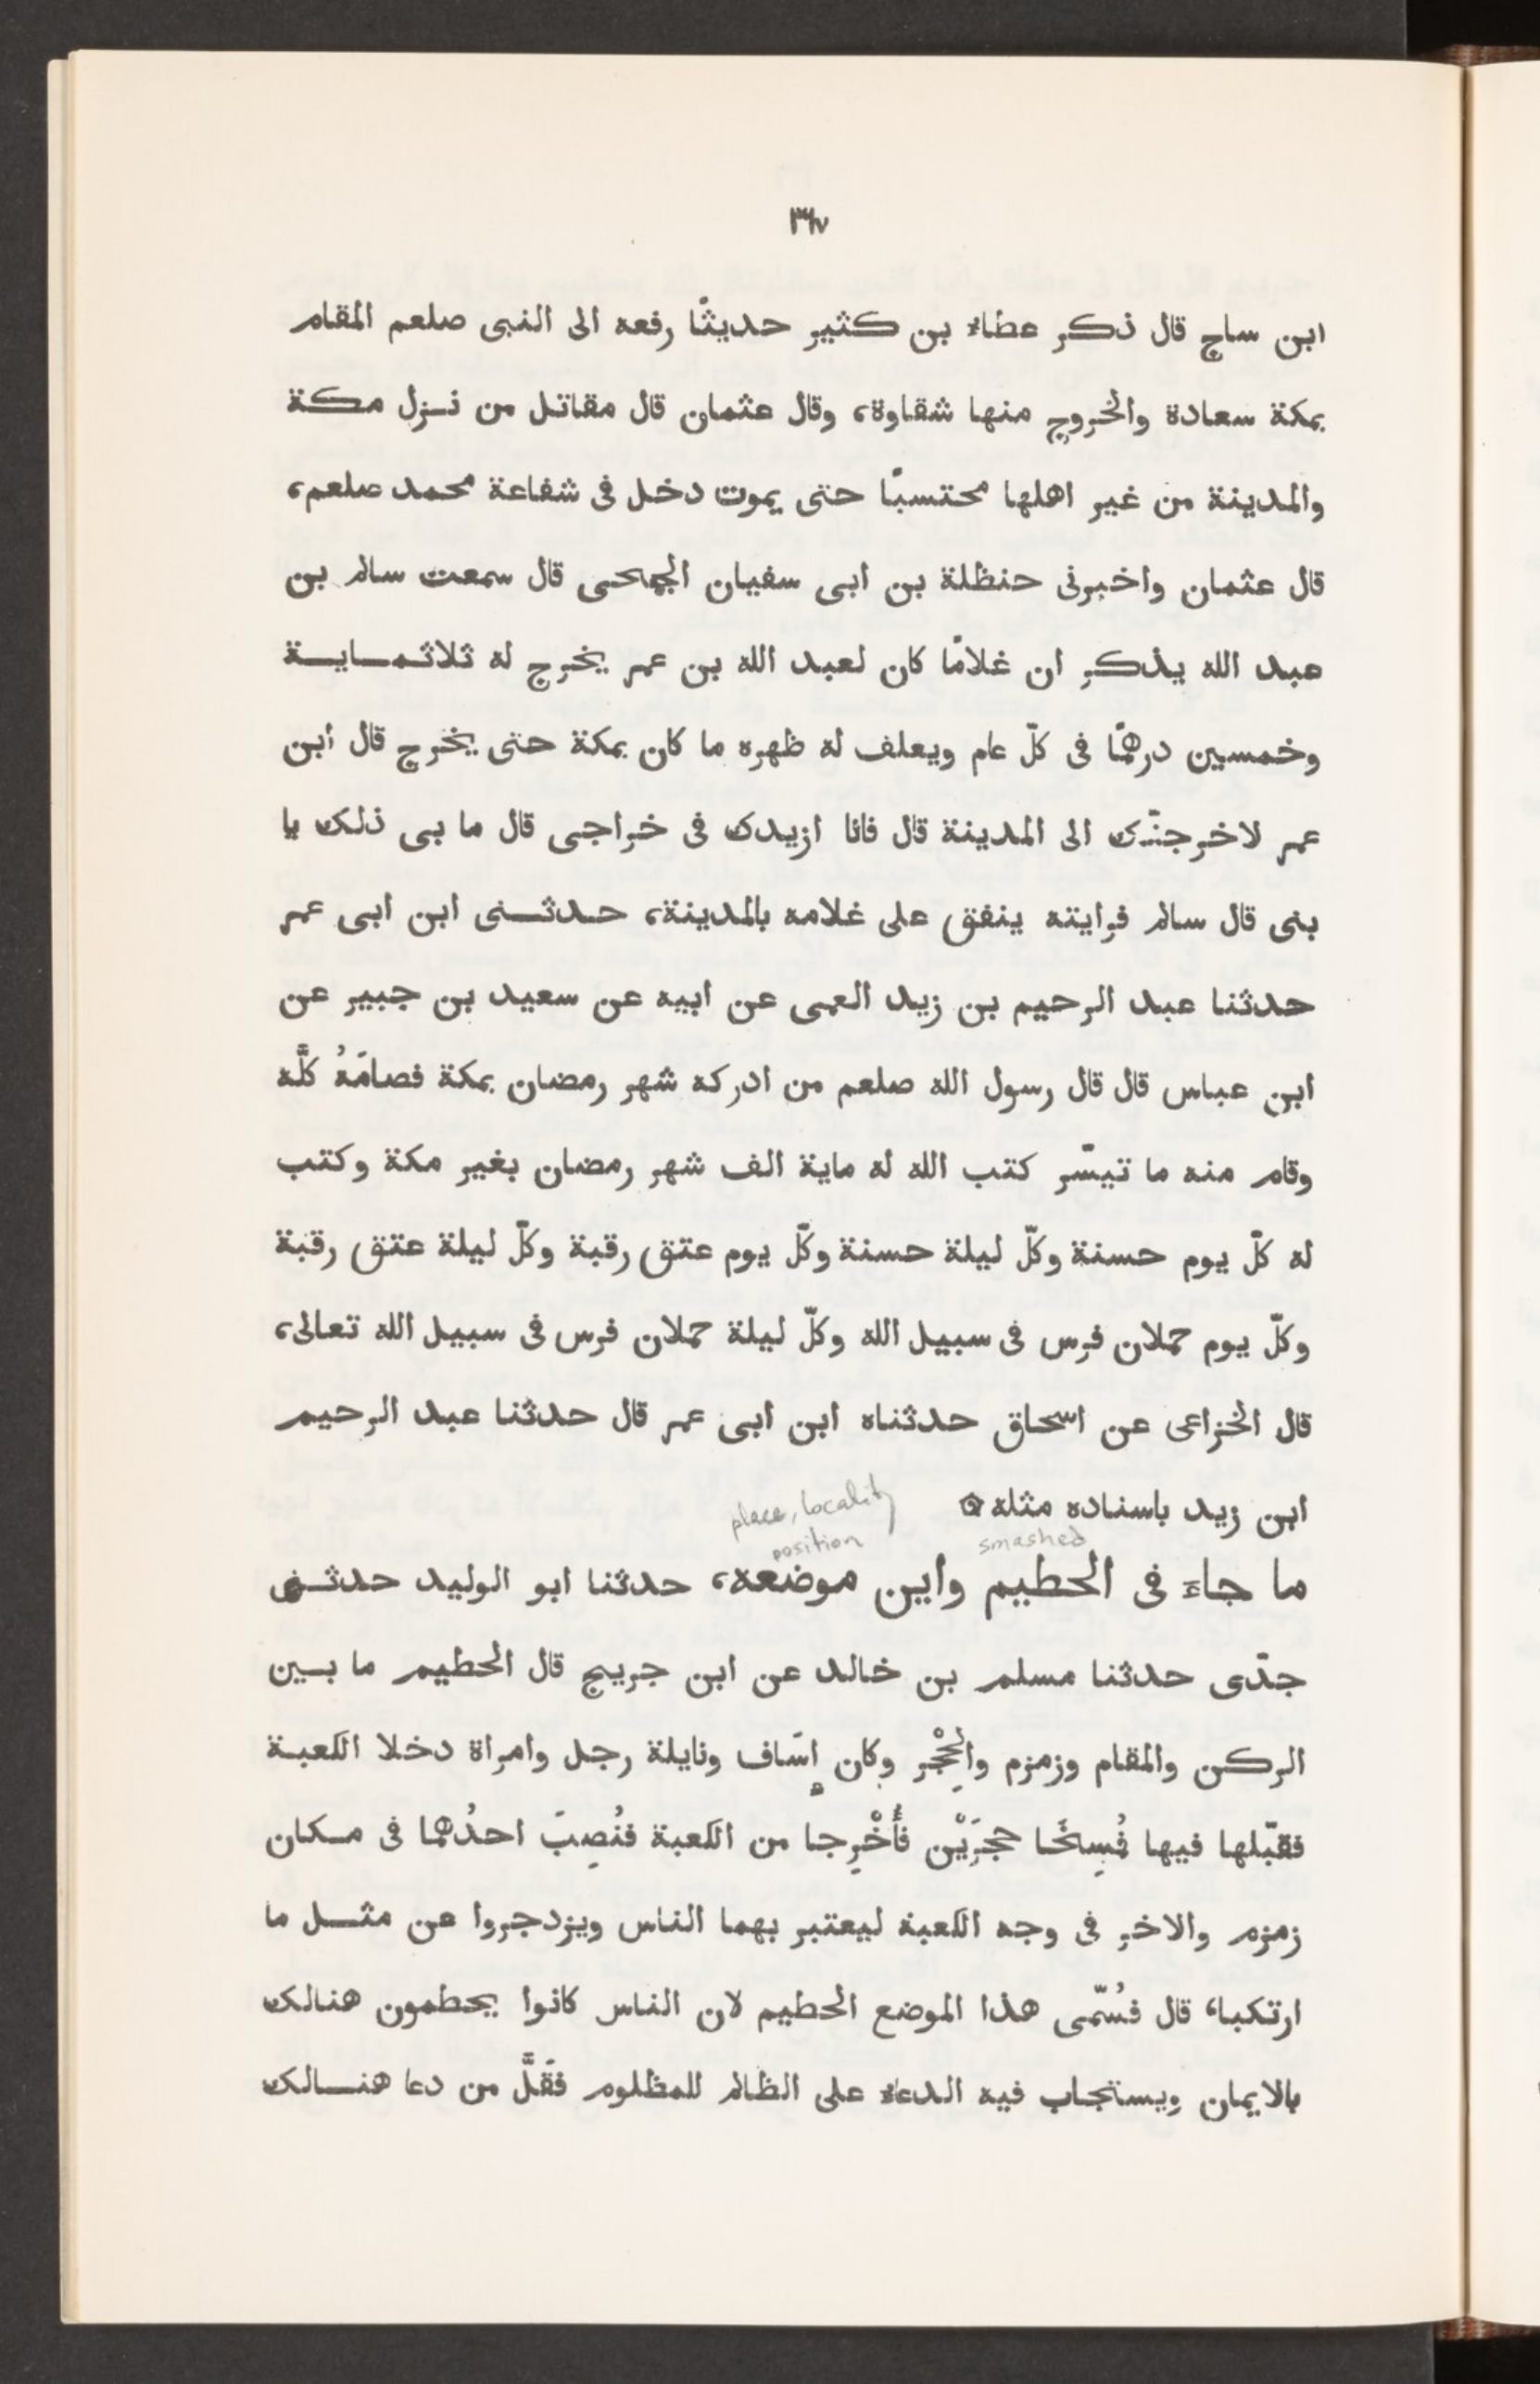 ٣٦٧
ابن ساج قال ذكر عطاء بن كثير حديثًا رفعه الى النبى صلعم المقام
بمكة سعادة والخروج منها شقاوة، وقال عثمان قال مقاتل من نزل مكة
والمدينة من غير اهلها محتسبًا حتى يموت دخل فى شفاعة محمد صلعم،
قال عثمان واخبرنى حنظلة بن ابى سفيان الجمحى قال سمعت سالم بن
عبد الله يذكر ان غلامًا كان لعبد الله بن عمر يخرج له ثلاثماية
وخمسين درهمًا فى كلّ عام ويعلف له ظهره ما كان بمكة حتى يخرج قال ابن
عمر لاخرجنّك الى المدينة قال فانا ازيدك فى خراجى قال ما بى ذلك يا
بنى قال سالم فرايته ينفق على غلامه بالمدينة، حدثنى ابن ابى عمر
حدثنا عبد الرحيم بن زيد العمى عن ابيه عن سعيد بن جبير عن
ابن عباس قال قال رسول الله صلعم من ادركه شهر رمضان بمكة فصامَهُ كلَّه
وقام منه ما تيسّر كتب الله له ماية الف شهر رمضان بغير مكة وكتب
له كلّ يوم حسنة وكلّ ليلة حسنة وكلّ يوم عتق رقبة وكلّ ليلة عتق رقبة
وكلّ يوم حملان فرس فى سبيل الله وكلّ ليلة حملان فرس فى سبيل الله تعالى،
قال الخزاعى عن اسحاق حدثناه ابن ابى عمر قال حدثنا عبد الرحيم
ابن زيد باسناده مثله ۞
place, locality
position
smashed
ما جاءَ فى الحطيم واين موضعه، حدثنا ابو الوليد حدثنى
جدّى حدثنا مسلم بن خالد عن ابن جريج قال الحطيم ما بين
الركن والمقام وزمزم والحِجْر وكان إسَاف ونايلة رجل وامراة دخلا الكعبة
فقبّلها فيها فُسِخَا حَجَرَيْن فأُخْرِجا من الكعبة فنُصِبَ احدُهما فى مكان
زمزم والاخر فى وجه الكعبة ليعتبر بهما الناس ويزدجروا عن مثل ما
ارتكبا، قال فسُمّى هذا الموضع الحطيم لان الناس كانوا يحطمون هنالك
بالايمان ويستجاب فيه الدعاء على الظالم للمظلوم فقَلَّ من دعا هنالك